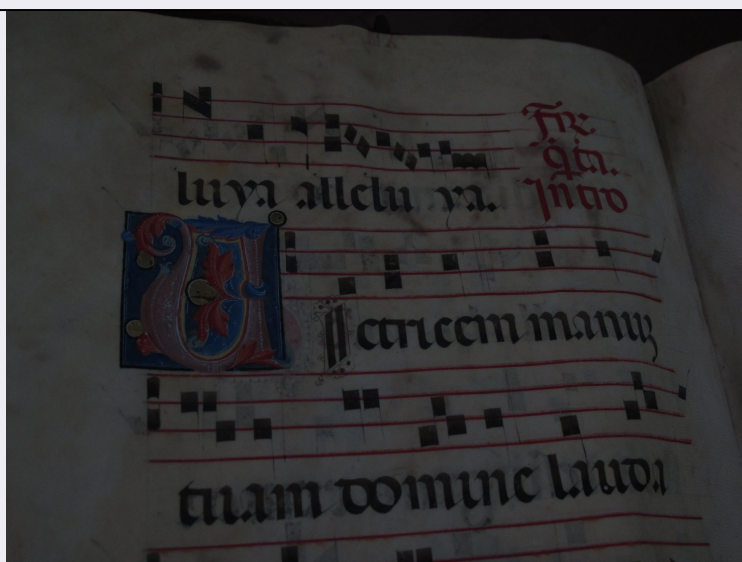 luya allelu ya.
Fir.
q̇ta.
Intro
Victricem manuz
tuam domine lauda